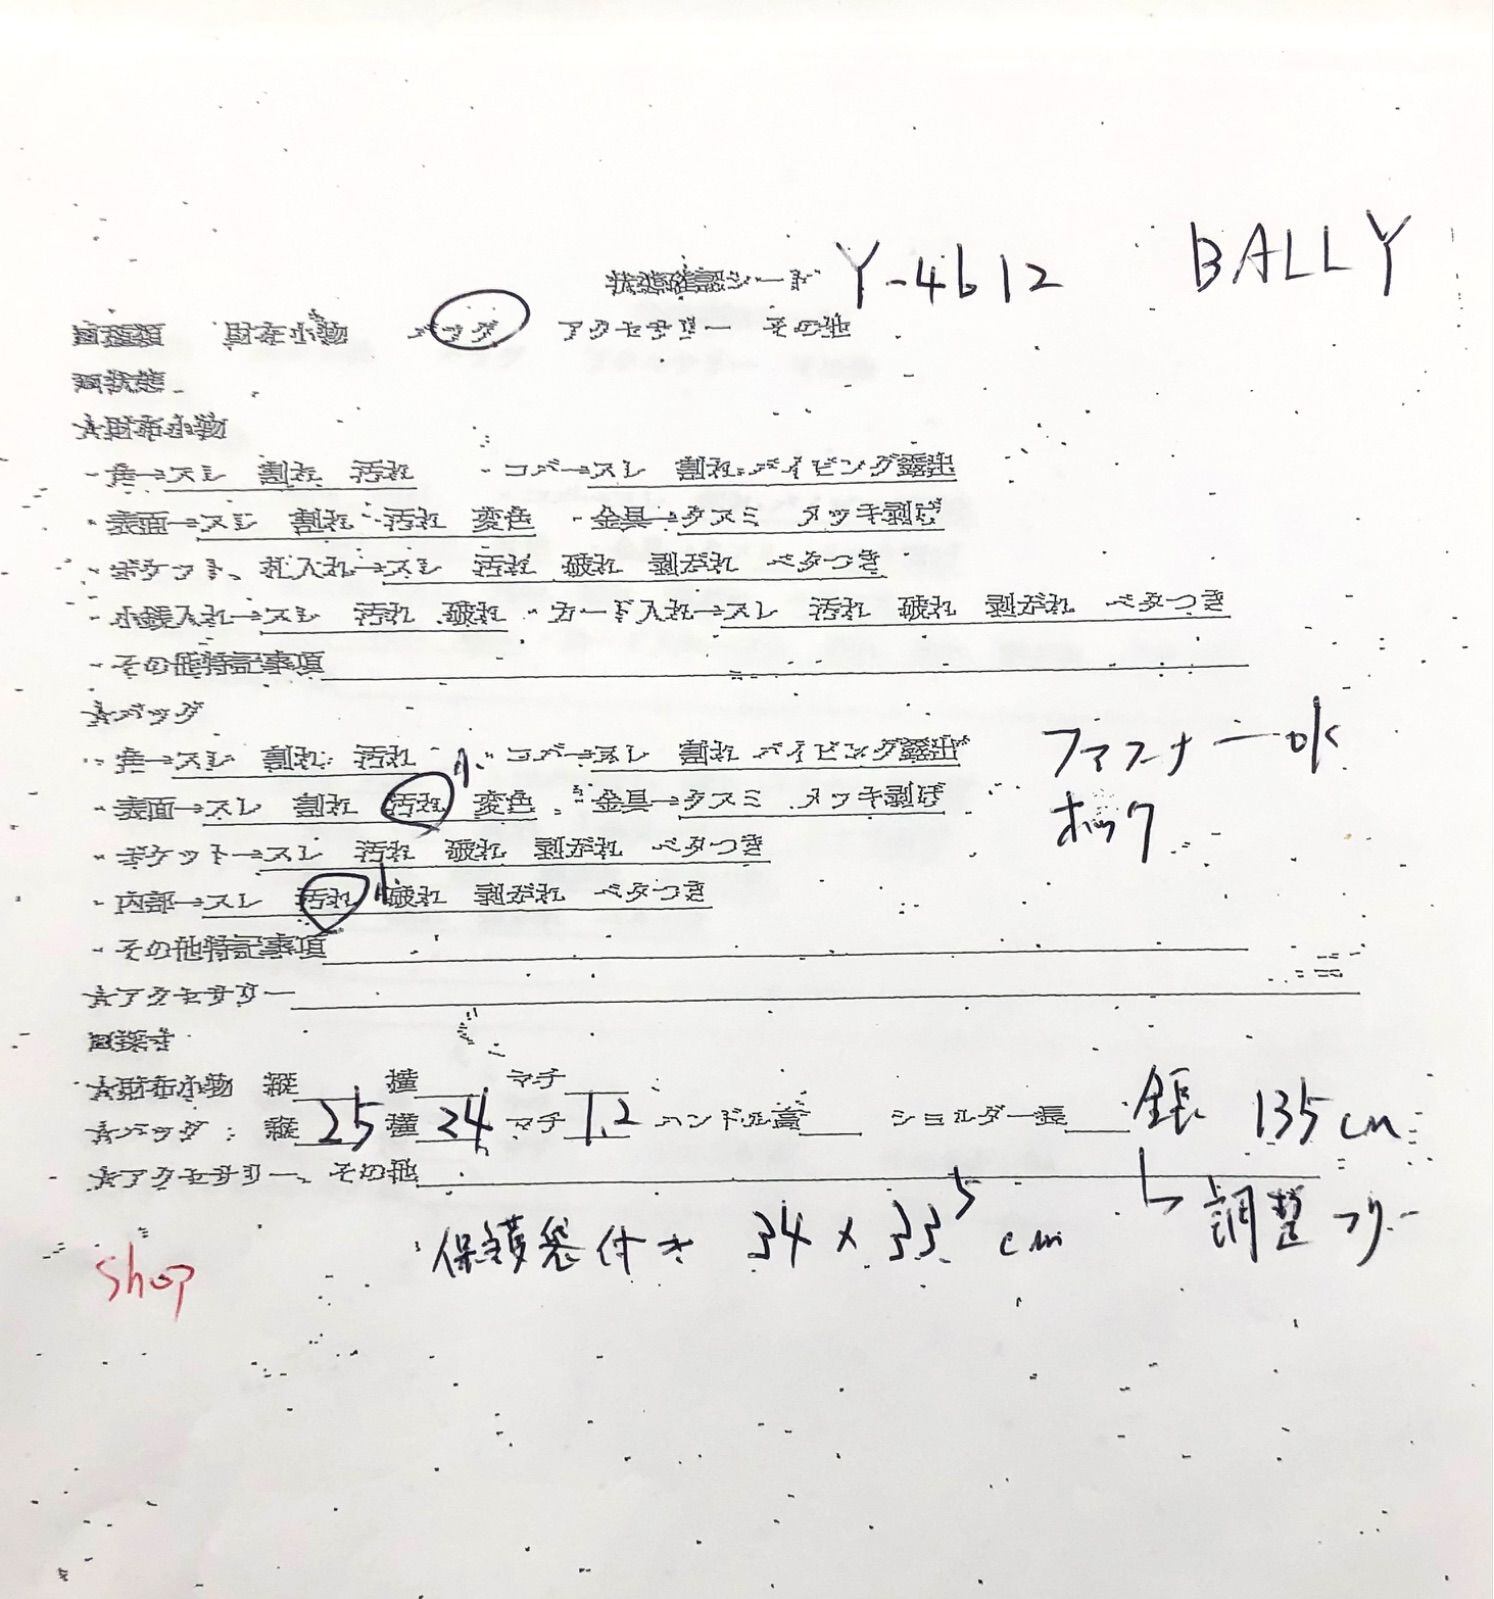 状態確認シート Y-4612 BALLY
□種類 財布小物 バッグ アクセサリー その他
□状態
★財布小物
・角→スレ 割れ 汚れ ・コバ→スレ 割れ パイピング露出
・表面→スレ 割れ 汚れ 変色 ・金具→クスミ メッキ剥げ
・ポケット、札入れ→スレ 汚れ 破れ 剥がれ ベタつき
・小銭入れ→スレ 汚れ 破れ ・カード入れ→スレ 汚れ 破れ 剥がれ ベタつき
・その他特記事項
★バッグ
・角→スレ 割れ 汚れ 小 ・コバ→スレ 割れ パイピング露出 ファスナー ok
・表面→スレ 割れ 汚れ 変色 ・金具→クスミ メッキ剥げ ホック
・ポケット→スレ 汚れ 破れ 剥がれ ベタつき
・内部→スレ 汚れ 破れ 剥がれ ベタつき
・その他特記事項
★アクセサリー
□採寸
★財布小物 縦 横 マチ
★バッグ: 縦 25 横 24 マチ 1.2 ハンドル高 ショルダー長 全長 135cm
★アクセサリー、その他 調整
保護袋付き 34×33.5cm
shop